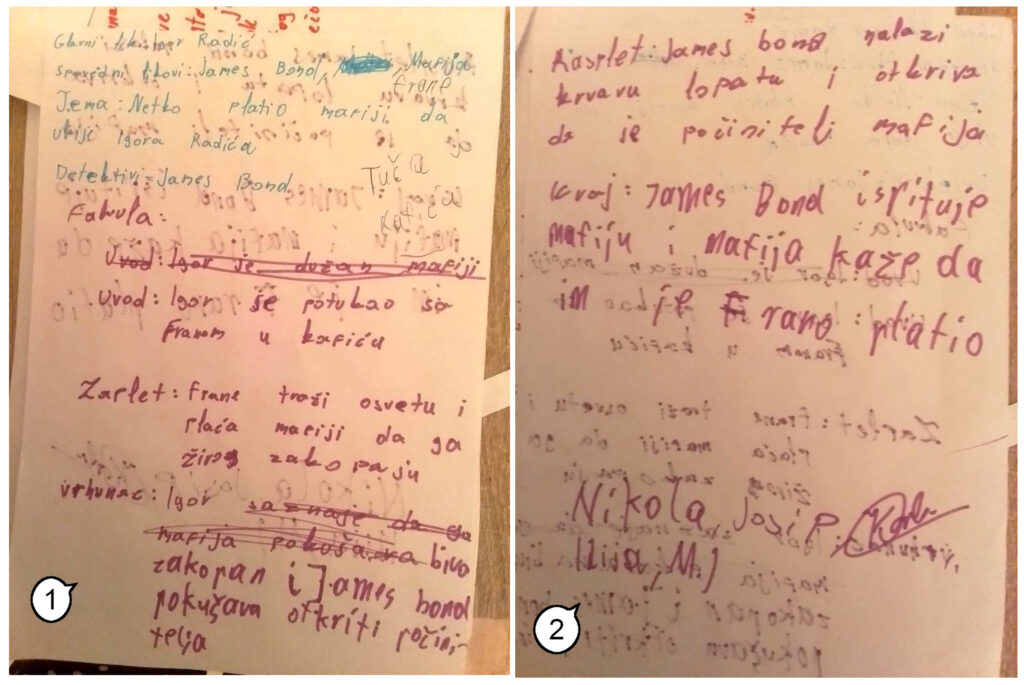 Glavni lik: Igor Radić
sporedni likovi: James Bond, Mafija
Frane
Tema: Netko platio mafiji da
ubije Igora Radića
Detektivi=James Bond
Tuča
Katića
Fabula:
Uvod: Igor je dužan mafiji
Uvod: Igor se potukao sa
Franom u kafiću
Zaplet: Frane traži osvetu i
plaća mafiji da ga
živog zakopaju
vrhunac: Igor saznaje da ga
mafija pokušava bivo
zakopan i James bond
pokušava otkriti počini-
telja
1
Rasplet: James bond nalazi
krvavu lopatu i otkriva
da je počinitelj mafija
Kraj: James Bond ispituje
mafiju i mafija kaže da
im je Frano platio
Nikola Josip
Ilija, MJ
2